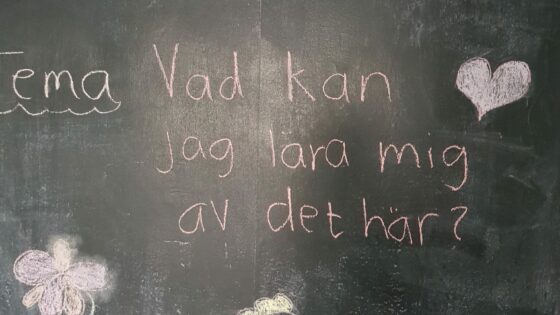 Tema Vad kan
jag lära mig
av det här?